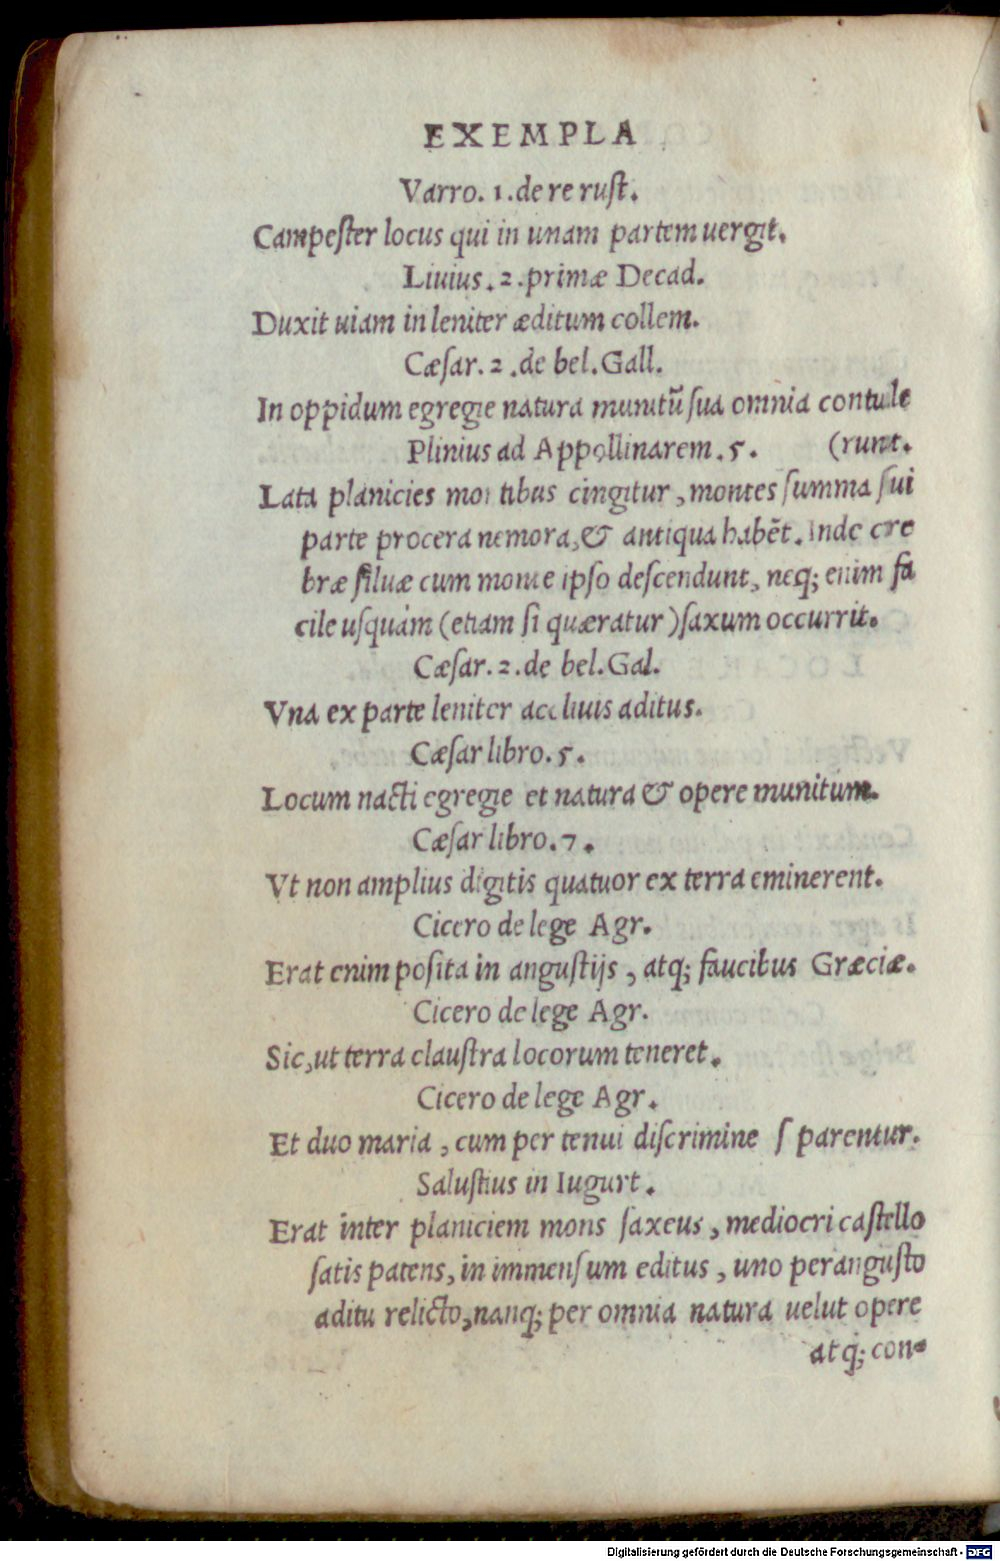 EXEMPLA
Varro. 1. de re rust.
Campester locus qui in unam partem uergit.
Liuius. 2. primæ Decad.
Duxit uiam in leniter æditum collem.
Cæsar. 2. de bel. Gall.
In oppidum egregie natura munitū sua omnia contule
Plinius ad Appollinarem. 5. (runt.
Lata planicies montibus cingitur, montes summa sui
parte procera nemora, & antiqua habēt. Inde cre
bræ siluæ cum monte ipso descendunt, neq; enim fa
cile usquàm (etiam si quæratur) saxum occurrit.
Cæsar. 2. de bel. Gal.
Vna ex parte leniter accliuis aditus.
Cæsar libro. 5.
Locum nacti egregie et natura & opere munitum.
Cæsar libro. 7.
Vt non amplius digitis quatuor ex terra eminerent.
Cicero de lege Agr.
Erat enim posita in angustijs, atq; faucibus Græciæ.
Cicero de lege Agr.
Sic, ut terra claustra locorum teneret.
Cicero de lege Agr.
Et duo maria, cum per tenui discrimine s parentur.
Salustius in Iugurt.
Erat inter planiciem mons saxeus, mediocri castello
satis patens, in immensum editus, uno perangusto
aditu relicto, nanq; per omnia natura uelut opere
atq; con-
Digitalisierung gefördert durch die Deutsche Forschungsgemeinschaft - DFG